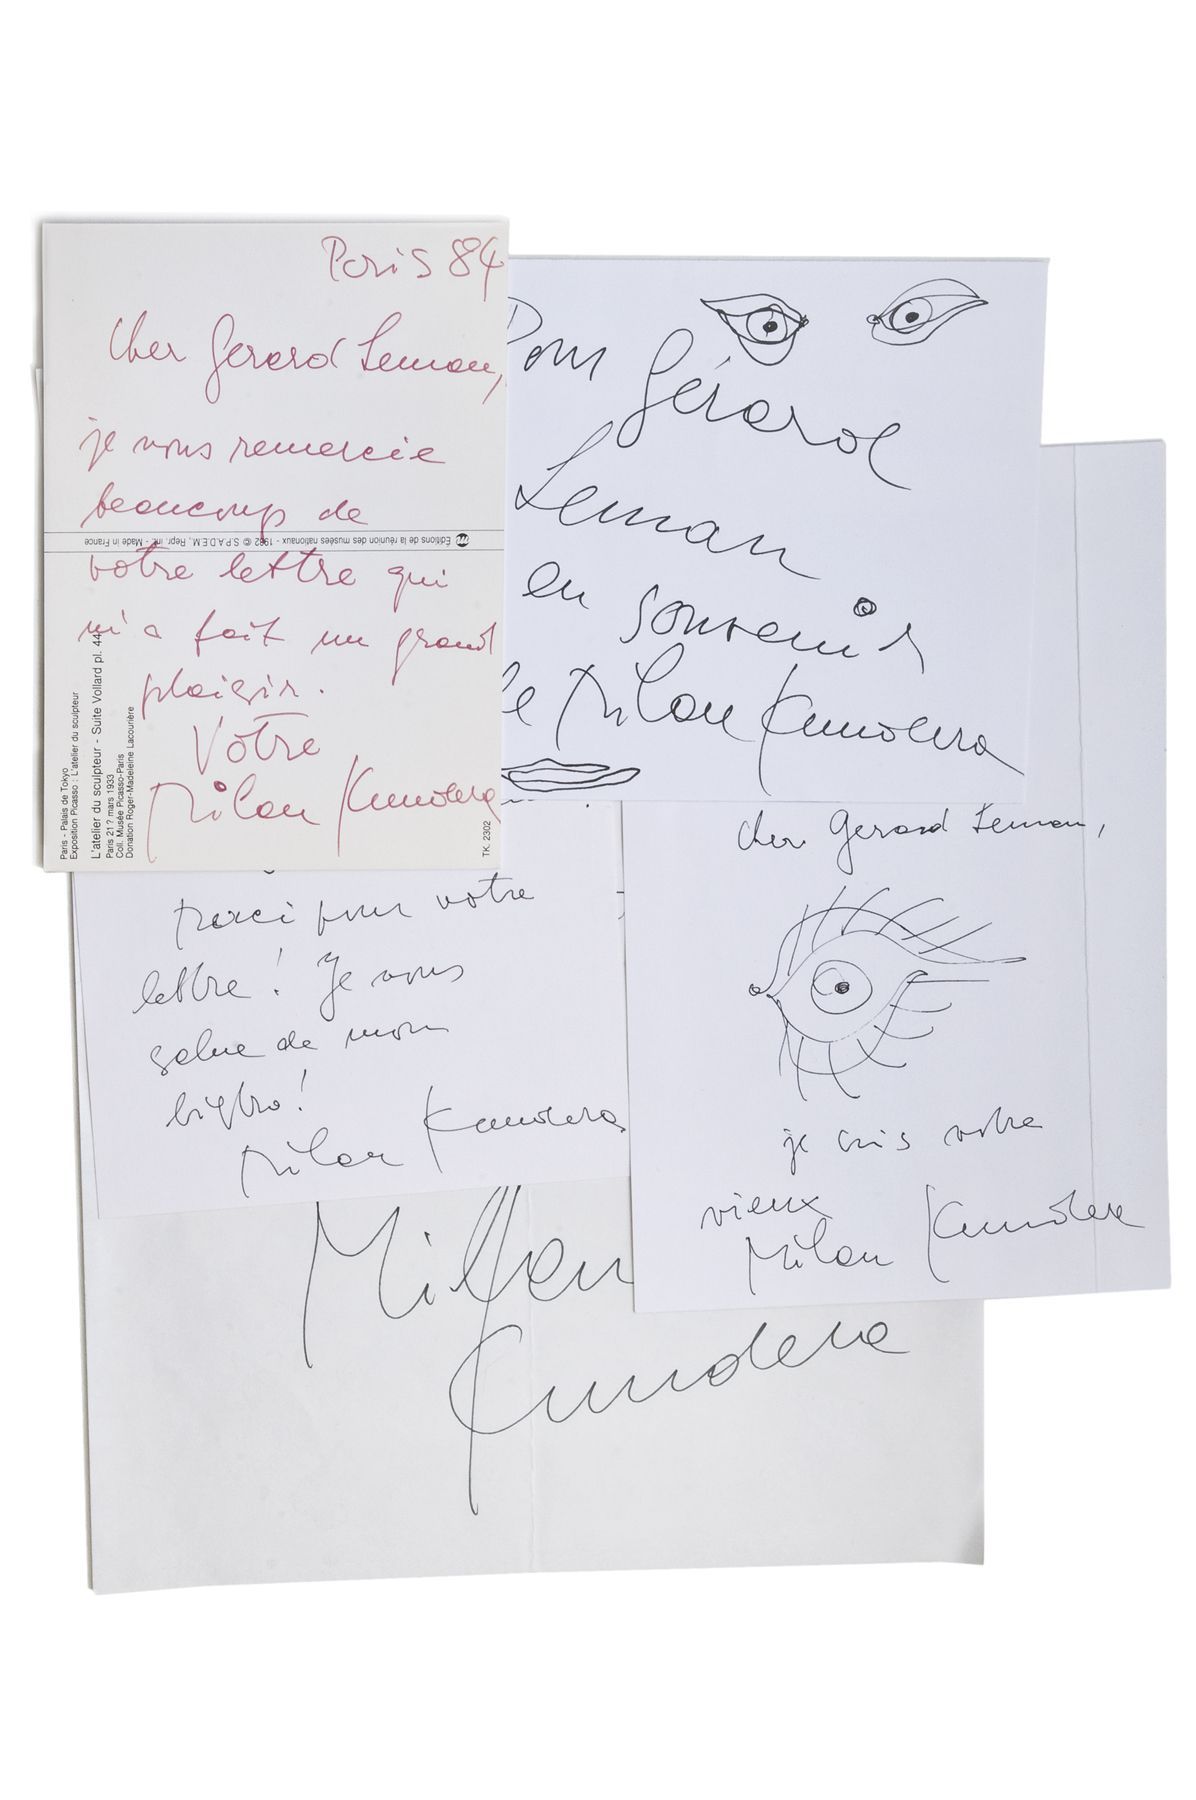 Paris 84
Cher Gerard Leman,
je vous remercie
beaucoup de
votre lettre qui
m'a fait un grand
plaisir.
Votre
Milan Kundera
Éditions de la réunion des musées nationaux - 1982 © S.P.A.D.E.M., Repr. int. - Made in France
Paris - Palais de Tokyo
Exposition Picasso : L'atelier du sculpteur
L'atelier du sculpteur - Suite Vollard pl. 44
Paris 21 ? mars 1933
Coll. Musée Picasso-Paris
Donation Roger-Madeleine Lacourière
TK. 2302
Pour Gérard
Leman
en souvenir
de Milan Kundera
merci pour votre
lettre! Je vous
salue de mon
bistro!
Milan Kundera
Cher Gerard Leman,
je suis votre
vieux
Milan Kundera
Milan
Kundera